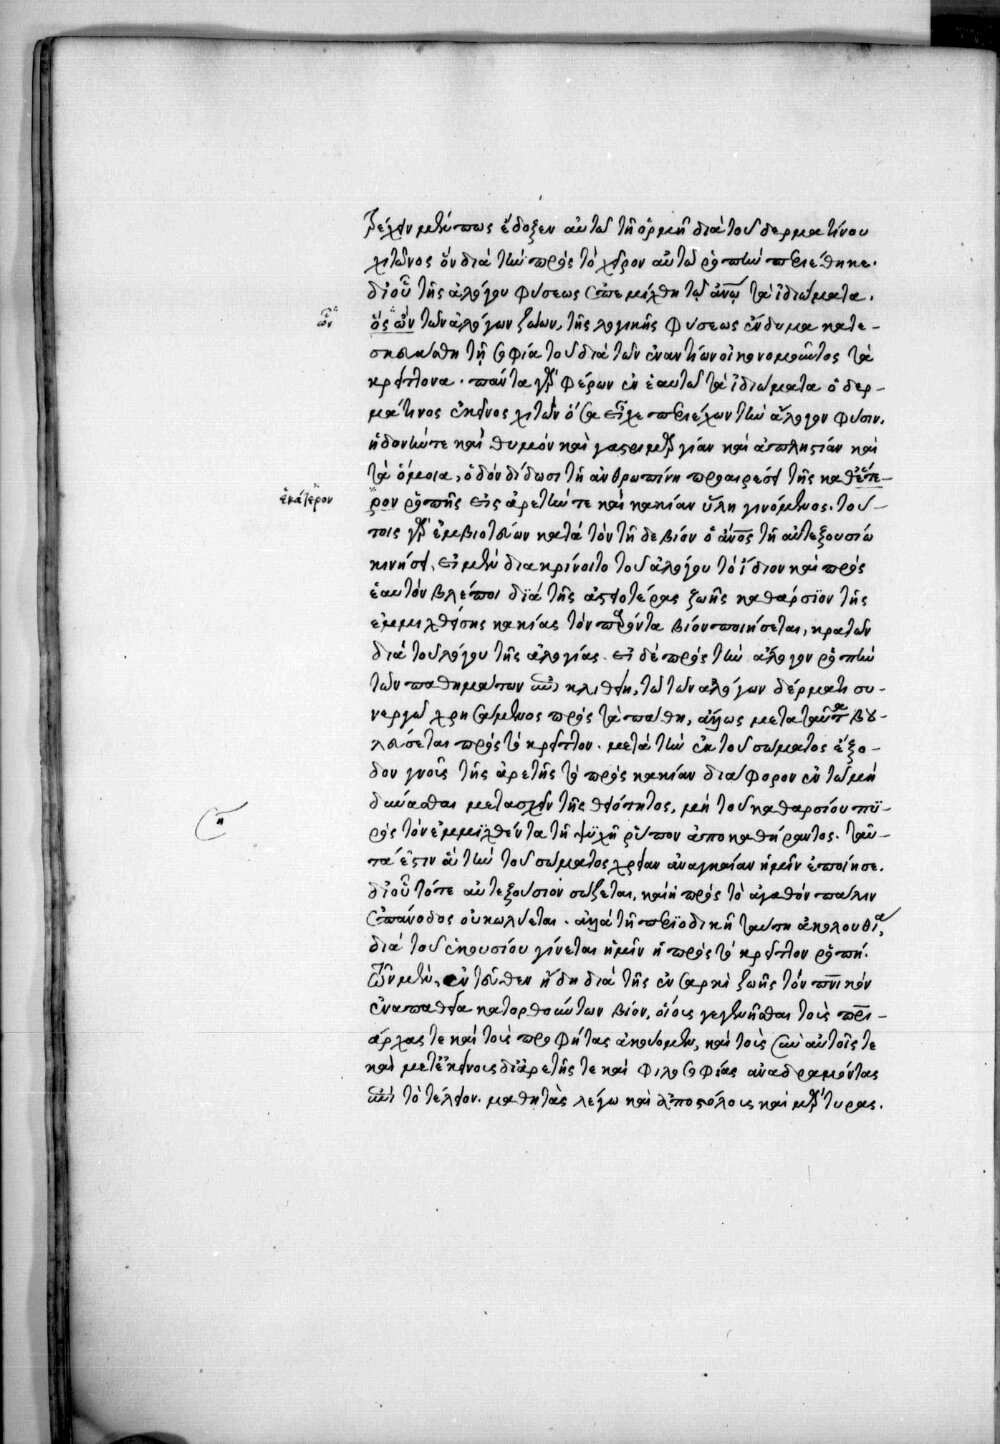 ξέχειν μὲν πως ἔδοξεν αὐτῶ τῆ ὁρμῆ διὰ τοῦ δερματίνου
χιτῶνος ὃν διὰ τὴν πρὸς τὸ χεῖρον αὐτῶ ῥοπὴν περιέθηκε.
δι οὗ τῆς ἀλόγου φύσεως ἐπεμίχθη τῶ ἀνω τὰ ἰδιώματα.
ὧν
ὃς ὢν τῶν ἀλόγων ζώων, τῆς λογικῆς φύσεως ἔνδυμα κατε-
σκευάσθη τῆ σοφία τοῦ διὰ τῶν ἐναντίων οἰκονομοῦντος τὰ
κρείττονα. πάντα γὰρ φέρων ἐν ἑαυτῶ τὰ ἰδιώματα ὁ δερ-
μάτινος ἐκεῖνος χιτὼν ὅσα εἶχε περιέχων τὴν ἄλογον φύσιν,
ἡδονήν τε καὶ θυμὸν καὶ γαστριμαργίαν καὶ ἀπληστίαν καὶ
τὰ ὅμοια, ὁδὸν δίδωσι τῆ ἀνθρωπίνη προαιρέσει τῆς καθ ἕτε-
ἑκάτερον
ρον ῥοπῆς εἰς ἀρετήν τε καὶ κακίαν ὕλη γινόμενος. τού-
τοις γὰρ ἐμβιοτεύων κατὰ τὸν τῆδε βίον ὁ ἀνος τῆ αὐτεξουσίω
κινήσει, εἰ μὲν διακρίνοιτο τοῦ ἀλόγου τὸ ἴδιον καὶ πρὸς
ἑαυτὸν βλέποι διὰ τῆς ἀστειοτέρας ζωῆς καθάρσιον τῆς
ἐμμιχθείσης κακίας τὸν παρόντα βίον ποιήσεται, κρατῶν
διὰ τοῦ λόγου τῆς ἀλογίας. εἰ δὲ πρὸς τὴν ἄλογον ῥοπὴν
τῶν παθημάτων ἐπικλιθείη, τῶ τῶν ἀλόγων δέρματι συ-
νεργῶ χρησάμενος πρὸς τὰ πάθη, ἄλλως μετὰ ταῦτα βου-
λεύσεται πρὸς τὸ κρεῖττον. μετὰ τὴν ἐκ τοῦ σώματος ἔξο-
δον γνοὺς τῆς ἀρετῆς τὸ πρὸς κακίαν διάφορον ἐν τῶ μὴ
δύνασθαι μετασχεῖν τῆς θεότητος, μὴ τοῦ καθαρσίου πυ-
ρὸς τὸν ἐμμιχθέντα τῆ ψυχῆ ῥύπον ἀποκαθήραντος. ταῦ-
τά ἐστιν ἃ τὴν τοῦ σώματος χρείαν ἀναγκαίαν ἡμῖν ἐποίησε.
δι οὗ τό τε αὐτεξούσιον σώζεται, καὶ ἡ πρὸς τὸ ἀγαθὸν πάλιν
ἐπάνοδος οὐ κωλύεται. ἀλλὰ τῆ περιοδικῆ ταύτη ἀκολουθία,
διὰ τοῦ ἑκουσίου γίνεται ἡμῖν ἡ πρὸς τὸ κρεῖττον ῥοπή.
τῶν μὲν, ἐντεῦθεν ἤδη διὰ τῆς ἐν σαρκὶ ζωῆς τὸν πνικὸν
ἐν ἀπαθεία κατορθούντων βίον. οἵους γεγενῆσθαι τοὺς πρι-
άρχας τε καὶ τοὺς προφήτας ἀκούομεν, καὶ τοὺς σὺν αὐτοῖς τε
καὶ μετ ἐκείνους δι ἀρετῆς τε καὶ φιλοσοφίας ἀναδραμόντας
ἐπὶ τὸ τέλειον. μαθητὰς λέγω καὶ ἀποστόλους καὶ μάρτυρας.